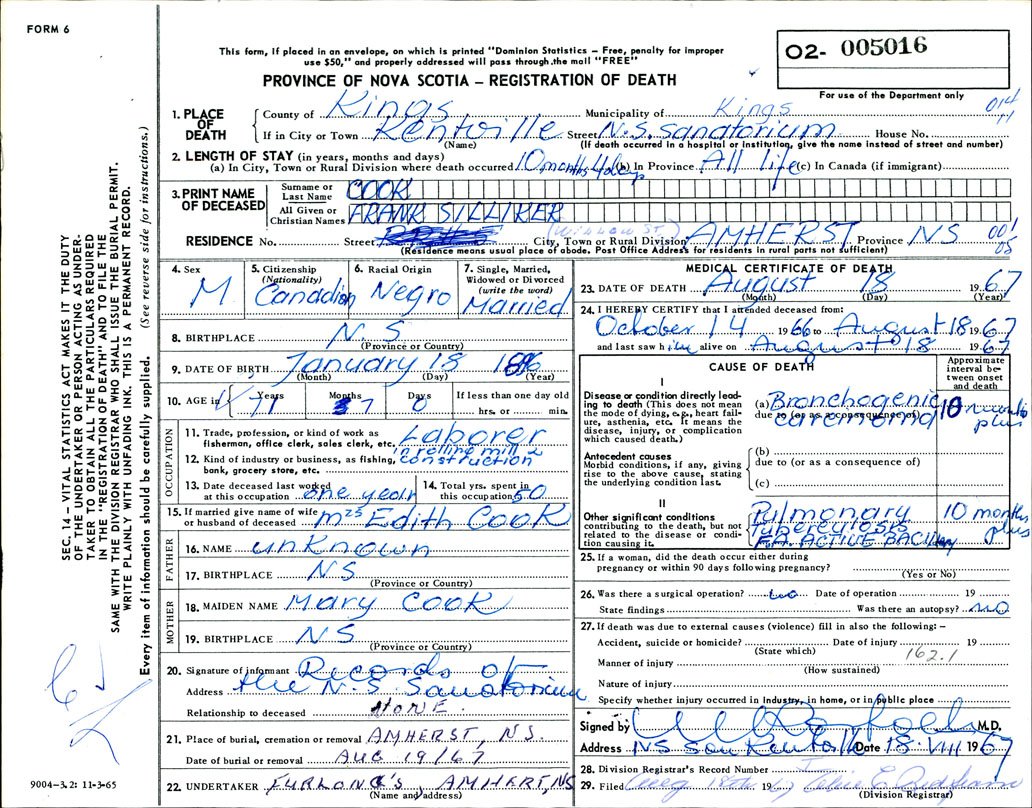 FORM 6
This form, if placed in an envelope, on which is printed "Dominion Statistics – Free, penalty for improper
use $50," and properly addressed will pass through the mail "FREE"
PROVINCE OF NOVA SCOTIA – REGISTRATION OF DEATH
O2- 005016
For use of the Department only
014
11
1. PLACE OF DEATH
County of Kings Municipality of Kings
If in City or Town Kentville Street N.S. Sanatorium House No.
(Name) (If death occurred in a hospital or institution, give the name instead of street and number)
2. LENGTH OF STAY (in years, months and days)
(a) In City, Town or Rural Division where death occurred 10 months 4 days (b) In Province All life (c) In Canada (if immigrant)
3. PRINT NAME OF DECEASED
Surname or Last Name COOK
All Given or Christian Names FRANK SILLIKER
(WILLOW ST.)
RESIDENCE No. Street City, Town or Rural Division AMHERST Province NS
(Residence means usual place of abode. Post Office Address for residents in rural parts not sufficient)
001
05
4. Sex M
5. Citizenship (Nationality) Canadian
6. Racial Origin Negro
7. Single, Married, Widowed or Divorced (write the word) Married
8. BIRTHPLACE N.S
(Province or Country)
9. DATE OF BIRTH January 18 1896
(Month) (Day) (Year)
10. AGE in Years 71 Months 7 Days 0 If less than one day old hrs. or min.
OCCUPATION
11. Trade, profession, or kind of work as fisherman, office clerk, sales clerk, etc. Laborer
12. Kind of industry or business, as fishing, bank, grocery store, etc. in rolling mill & construction
13. Date deceased last worked at this occupation one year
14. Total yrs. spent in this occupation 50
15. If married give name of wife or husband of deceased Mrs Edith Cook
FATHER
16. NAME unknown
17. BIRTHPLACE NS
(Province or Country)
MOTHER
18. MAIDEN NAME Mary Cook
19. BIRTHPLACE NS
(Province or Country)
20. Signature of informant Records of
Address the N.S. Sanatorium
Relationship to deceased NONE.
21. Place of burial, cremation or removal AMHERST, NS.
Date of burial or removal AUG 19/67
22. UNDERTAKER FURLONG'S AMHERT, NS
(Name and address)
MEDICAL CERTIFICATE OF DEATH
23. DATE OF DEATH August 18 1967
(Month) (Day) (Year)
24. I HEREBY CERTIFY that I attended deceased from:
October 14 1966 to August 18 1967
and last saw him alive on August 18 1967
CAUSE OF DEATH
Approximate interval between onset and death
I
Disease or condition directly leading to death (This does not mean the mode of dying, e.g., heart failure, asthenia, etc. It means the disease, injury, or complication which caused death.)
(a) Bronchogenic carcinoma 10 months plus
due to (or as a consequence of)
Antecedent causes
Morbid conditions, if any, giving rise to the above cause, stating the underlying condition last.
(b)
due to (or as a consequence of)
(c)
II
Other significant conditions
contributing to the death, but not related to the disease or condition causing it.
Pulmonary Tuberculosis 10 months plus
F.A. ACTIVE
25. If a woman, did the death occur either during
pregnancy or within 90 days following pregnancy?
(Yes or No)
26. Was there a surgical operation? no Date of operation 19
State findings Was there an autopsy? no
27. If death was due to external causes (violence) fill in also the following: –
Accident, suicide or homicide? Date of injury 19
(State which) 162.1
Manner of injury
(How sustained)
Nature of injury
Specify whether injury occurred in industry, in home, or in public place
Signed by M.D.
Address NS San Kentville Date 18.VIII 1967
28. Division Registrar's Record Number
29. Filed Aug 18th 19
(Division Registrar)
SEC. 14 – VITAL STATISTICS ACT MAKES IT THE DUTY
OF THE UNDERTAKER OR PERSON ACTING AS UNDER-
TAKER TO OBTAIN ALL THE PARTICULARS REQUIRED
IN THE "REGISTRATION OF DEATH" AND TO FILE THE
SAME WITH THE DIVISION REGISTRAR WHO SHALL ISSUE THE BURIAL PERMIT.
WRITE PLAINLY WITH UNFADING INK. THIS IS A PERMANENT RECORD.
Every item of information should be carefully supplied. (See reverse side for instructions.)
9004-3.2: 11-3-65